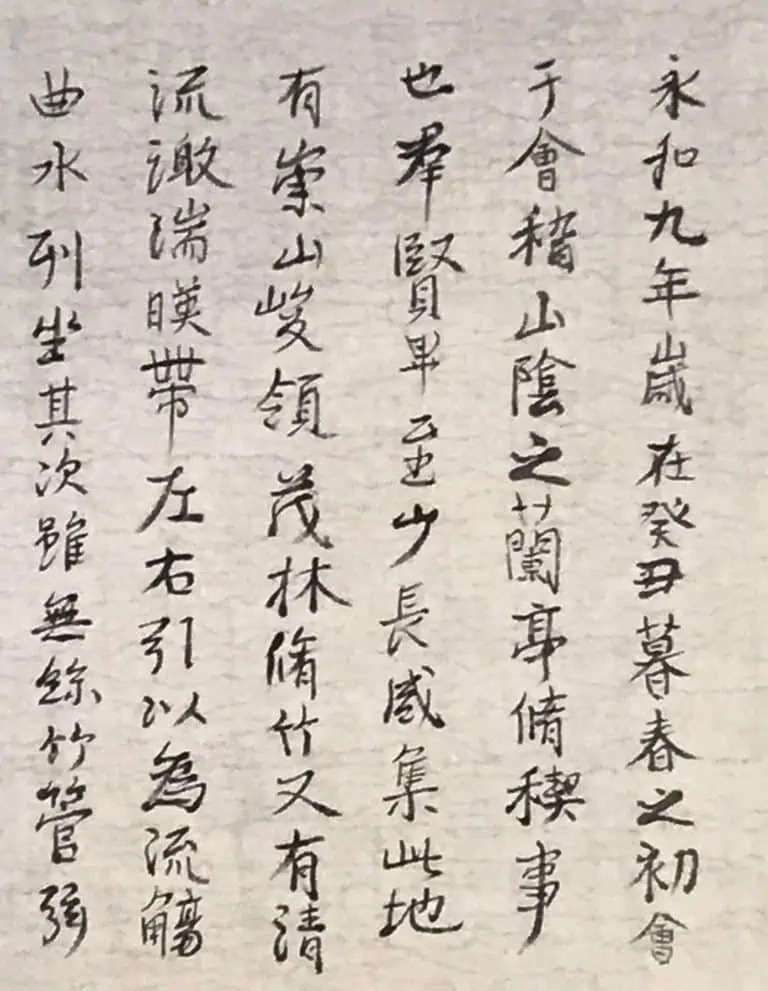 永和九年歲在癸丑暮春之初會
于會稽山陰之蘭亭脩稧事
也羣賢畢至少長咸集此地
有崇山峻領茂林脩竹又有清
流激湍暎帶左右引以為流觴
曲水列坐其次雖無絲竹管弦